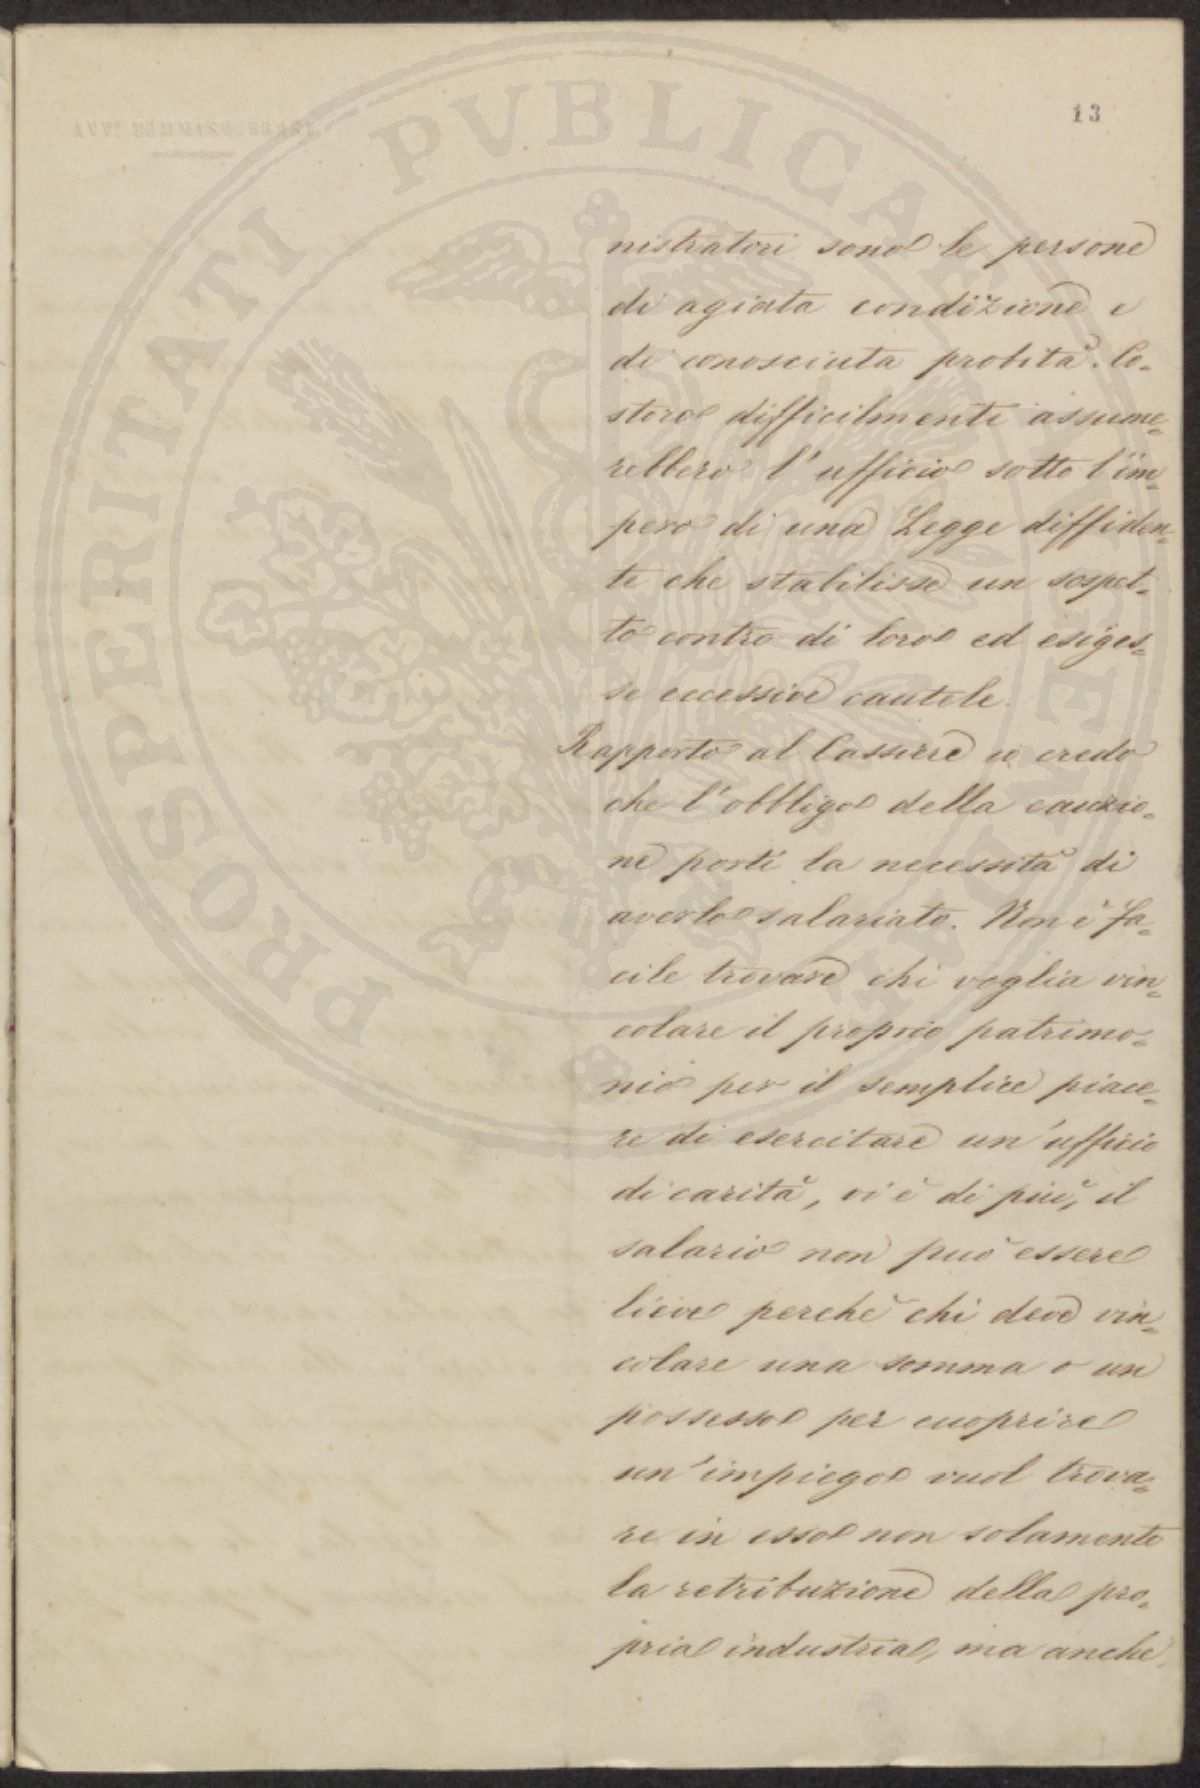 13
PROSPERITATI PVBLICAE AVGENDAE
nistratori sono le persone
di agiata condizione e
di conosciuta probità. Co-
storo difficilmente assume-
rebbero l'ufficio sotto l'im-
pero di una Legge diffiden-
te che stabilisse un sospet-
to contro di loro ed esiges-
se eccessive cautele.
Rapporto al Cassiere io credo
che l'obbligo della cauzio-
ne porti la necessità di
averlo salariato. Non è fa-
cile trovare chi voglia vin-
colare il proprio patrimo-
nio per il semplice piace-
re di esercitare un'ufficio
di carità, vi è di più, il
salario non può essere
lieve perchè chi deve vin-
colare una somma o un
possesso per cuoprire
un'impiego vuol trova-
re in esso non solamente
la retribuzione della pro-
pria industria, ma anche